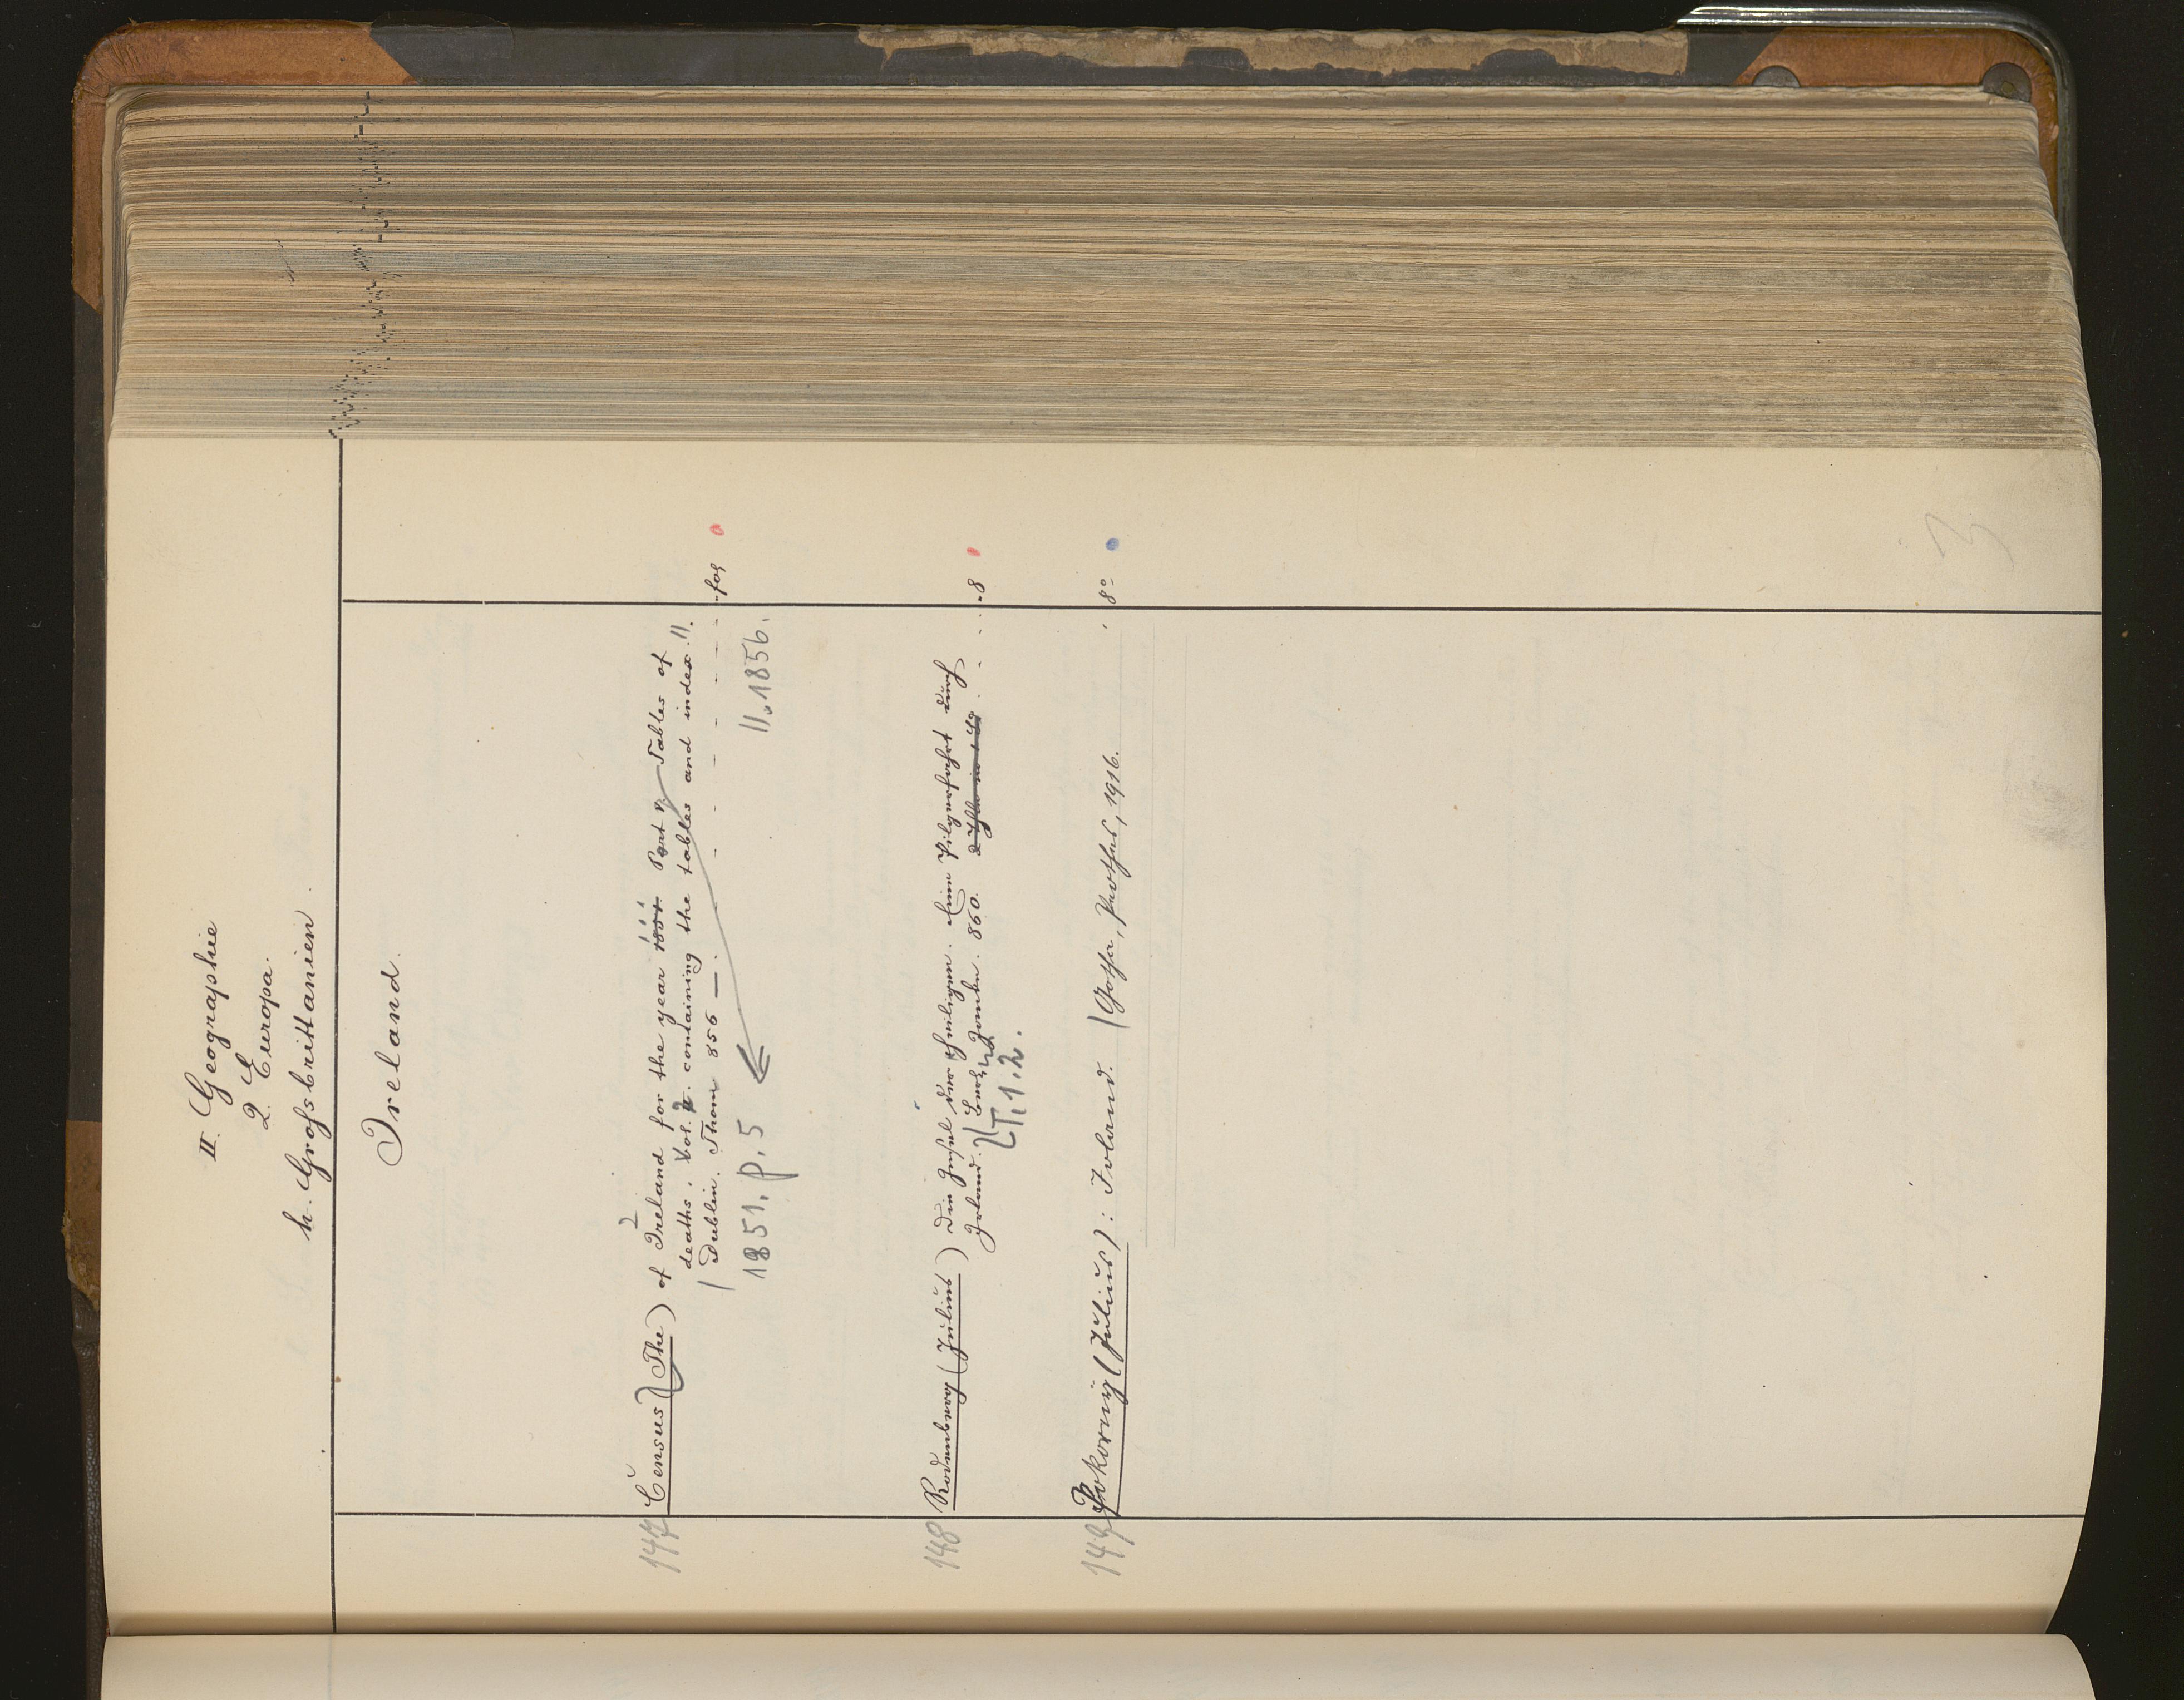 II. Geographie
2. Europa.
h. Grofsbrittanien.
Ireland.
147 Census (The) of Ireland for the year 1851. Part V. Tables of
deaths. Vol. 2. containing the tables and index. II.
Dublin. Thom 856 —. - - - - - - - fol
1851. p. 5 II. 1856.
148 Rodenberg (Julius) Die Insel der Heiligen. Eine Pilgerfahrt durch
Irland. Berlin. Janke. 860. - - - 8
T. 1. 2.
149 Pokorny (Julius): Irland. (Gotha, Perthes, 1916. 8°
3